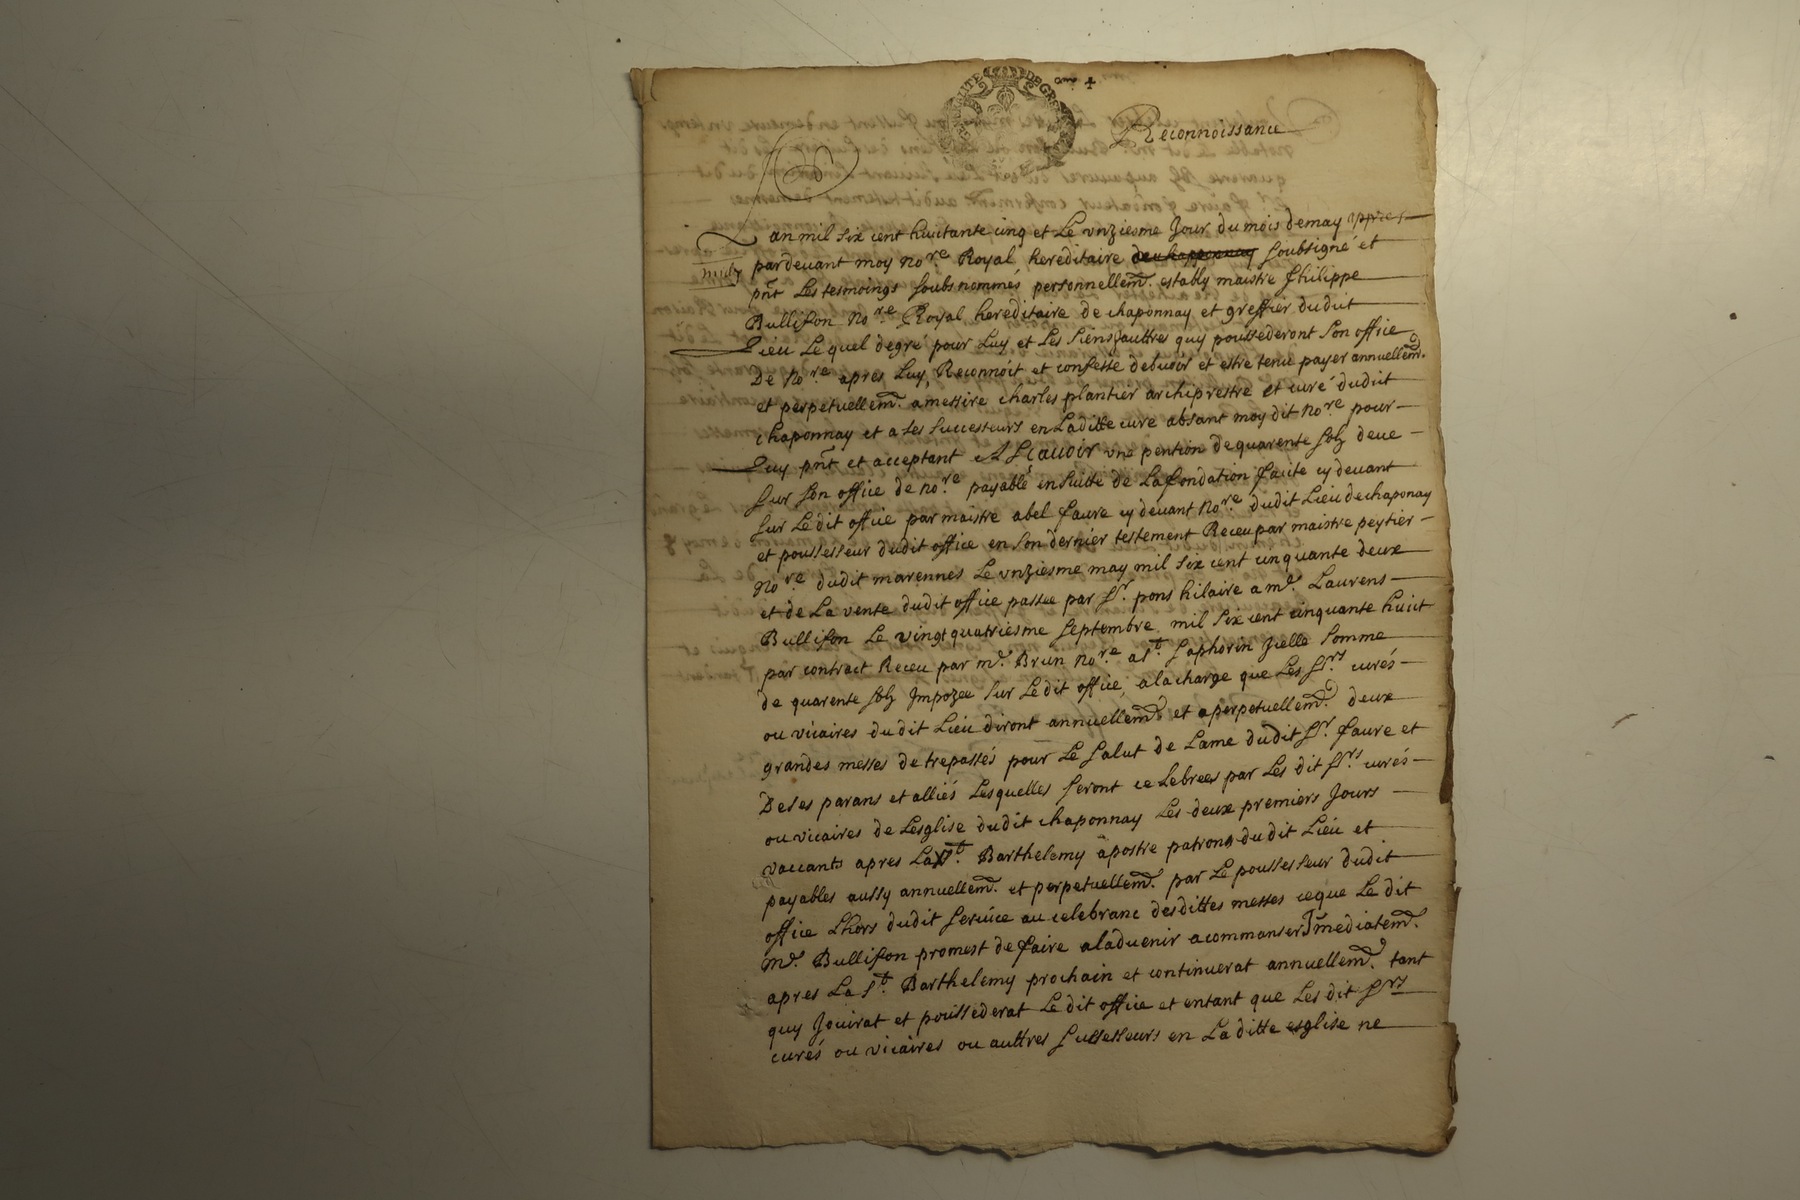 GENERALITE DE GRE
Reconnoissance
Lan mil six cent huictante cinq et Le vnziesme Jour du mois de may appres
midy pardeuant moy no.re Royal hereditaire soubsigné et
pnt Les tesmoings soubs nommés personnellem. estably maistre Philippe
Bullison No.re Royal hereditaire de chaponnay et greffier dudit
Lieu Lequel de gre pour Luy et Les siens autres quy poussederont son office
De No.re apres Luy, Reconnoit et confesse debuoir et estre tenu payer annuellem.
et perpetuellem. a messire charles plantier archiprestre et curé dudit
chaponnay et a ses successeurs en Laditte cure absant moy dit No.re pour
Luy pnt et acceptant A Scauoir vne pention de quarente solz deue
sur son office de no.re payable en suitte de La fondation faite cy deuant
sur Le dit office par maistre abel faure cy deuant No.re dudit Lieu de chaponay
et poussesseur dudit office en son dernier testement Receu par maistre peytier
No.re dudit marennes Le vnziesme may mil six cent cinquante deux
et de La vente dudit office passee par sr. pons hilaire a me. Laurens
Bullison Le vingt quatriesme septembre mil six cent cinquante huict
par contract Receu par me. Brun no.re a st. saphorin Jcelle somme
de quarente solz Jmpozee sur Le dit office, a la charge que Les srs. curés
ou vicaires du dit Lieu diront annuellem. et a perpetuellem. deux
grandes messes de trepassés pour Le salut de Lame dudit sr. faure et
De ses parans et alliés Lesquelles seront celebrees par Les dit srs. curés
ou vicaires de Lesglise dudit chaponnay Les deux premiers Jours
vaccants apres La st. Barthelemy apostre patrong du dit Lieu et
payables aussy annuellem. et perpetuellem. par Le poussesseur dudit
office Lhors dudit seruice au celebranc des dittes messes ce que Le dit
me. Bullison promest de faire a laduenir a commanser Jmediatem.
apres La st. Barthelemy prochain et continuerat annuellem. tant
quy Jouirat et poussederat Le dit office et entant que Les dit srs
curés ou vicaires ou auttres sussesseurs en La ditte esglise ne